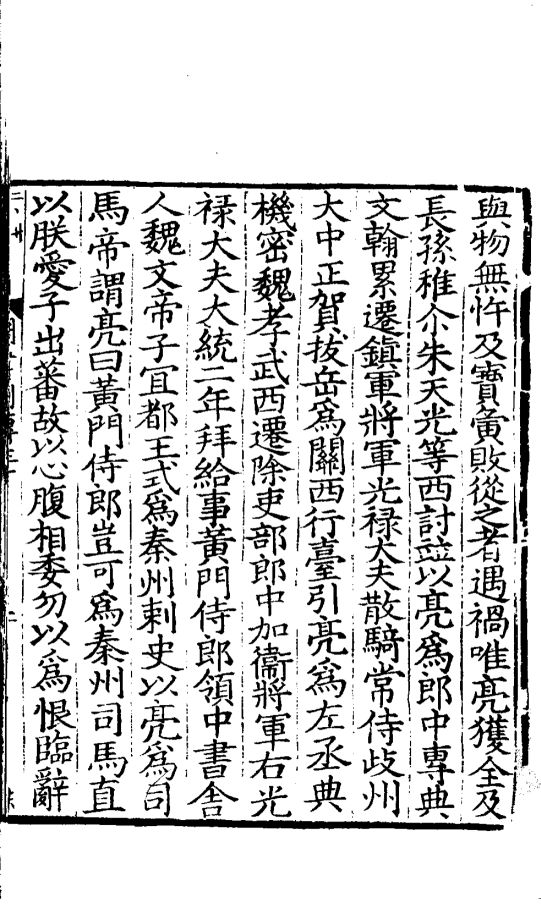 與物無忤及寶夤敗從之者遇禍唯亮獲全及
長孫稚尒朱天光等西討並以亮爲郎中專典
文翰累遷鎮軍將軍光禄大夫散騎常侍歧州
大中正賀拔岳爲關西行臺引亮爲左丞典
機密魏孝武西遷除吏部郎中加衞將軍右光
禄大夫大統二年拜給事黄門侍郎領中書舍
人魏文帝子冝都王式爲秦州刺史以亮爲司
馬帝謂亮曰黄門侍郎豈可爲秦州司馬直
以朕愛子出蕃故以心腹相委勿以爲恨臨辭